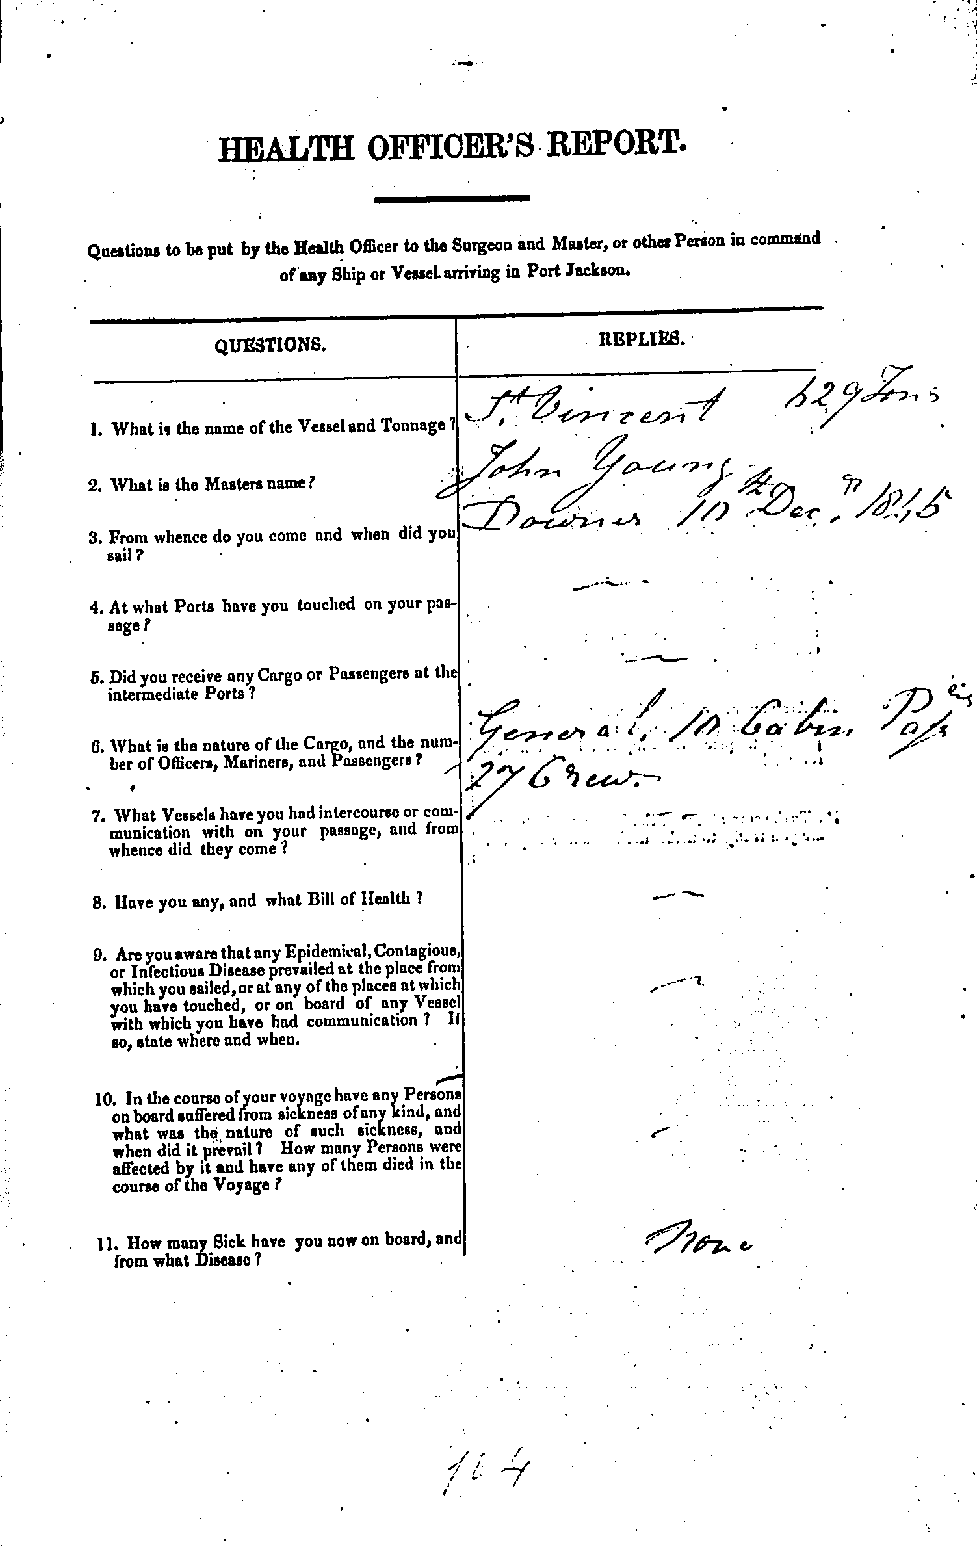 HEALTH OFFICER'S REPORT.
Questions to be put by the Health Officer to the Surgeon and Master, or other Person in command
of any Ship or Vessel arriving in Port Jackson.
QUESTIONS.
REPLIES.
1. What is the name of the Vessel and Tonnage?
St. Vincent 629 Tons
2. What is the Masters name?
John Young
3. From whence do you come and when did you
sail?
Downs 10th Dec. 1845
4. At what Ports have you touched on your pas-
sage?
—
5. Did you receive any Cargo or Passengers at the
intermediate Ports?
—
6. What is the nature of the Cargo, and the num-
ber of Officers, Mariners, and Passengers?
General, 10 Cabin
27 Crew.
7. What Vessels have you had intercourse or com-
munication with on your passage, and from
whence did they come?
8. Have you any, and what Bill of Health?
—
9. Are you aware that any Epidemical, Contagious,
or Infectious Disease prevailed at the place from
which you sailed, or at any of the places at which
you have touched, or on board of any Vessel
with which you have had communication? If
so, state where and when.
—
10. In the course of your voyage have any Persons
on board suffered from sickness of any kind, and
what was the nature of such sickness, and
when did it prevail? How many Persons were
affected by it and have any of them died in the
course of the Voyage?
—
11. How many Sick have you now on board, and
from what Disease?
None